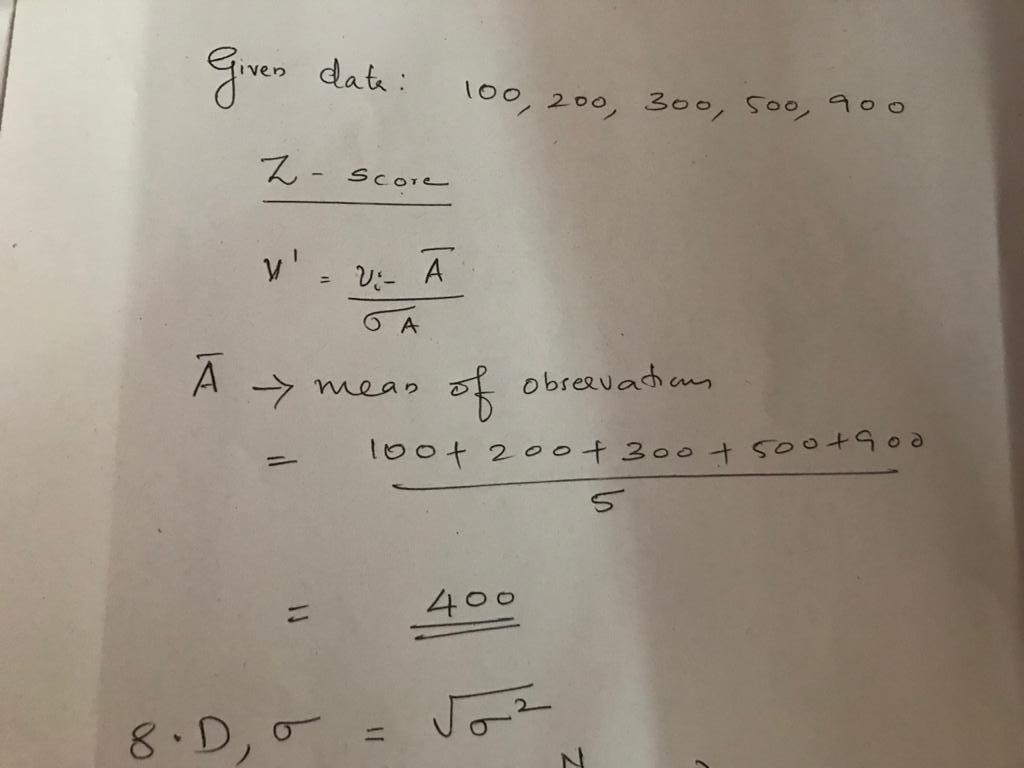 Given data: 100, 200, 300, 500, 900
Z - score
v' = vi - Ā
σA
Ā → mean of observations
= 100 + 200 + 300 + 500 + 900
5
= 400
S.D, σ = √σ²
N